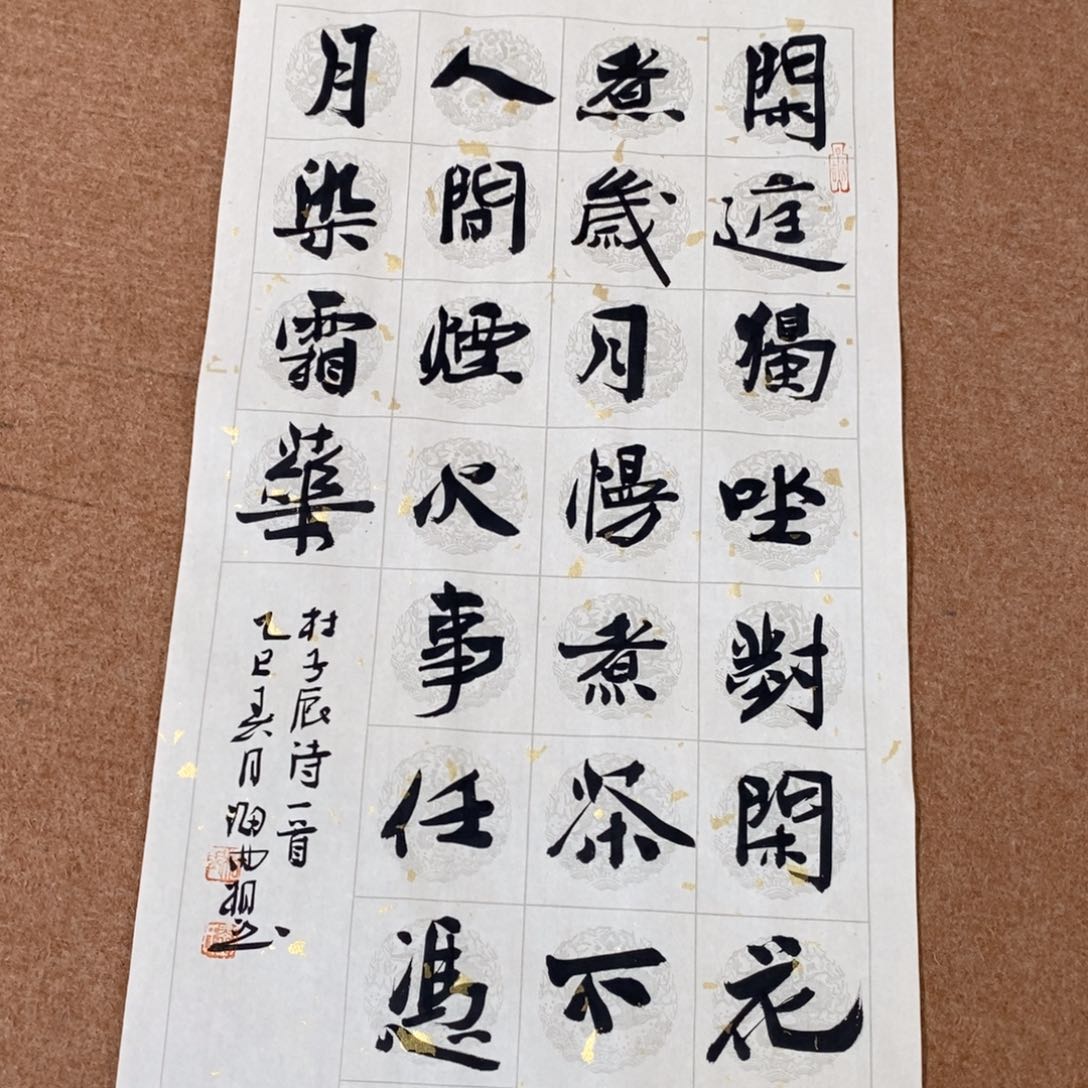 閑庭獨坐對閑花
煮歲月慢煮茶不
人間煙火事任憑
月染霜華
杜子辰诗一首
乙巳春月海曲